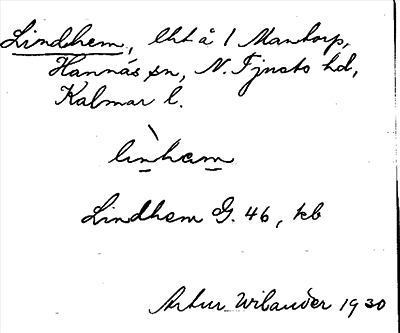 Lindhem, lht å 1 Mantorp,
Hannäs sn, N. Tjusts hd,
Kalmar l.
linhem
Lindhem G. 46, kb
Artur Wilander 1930